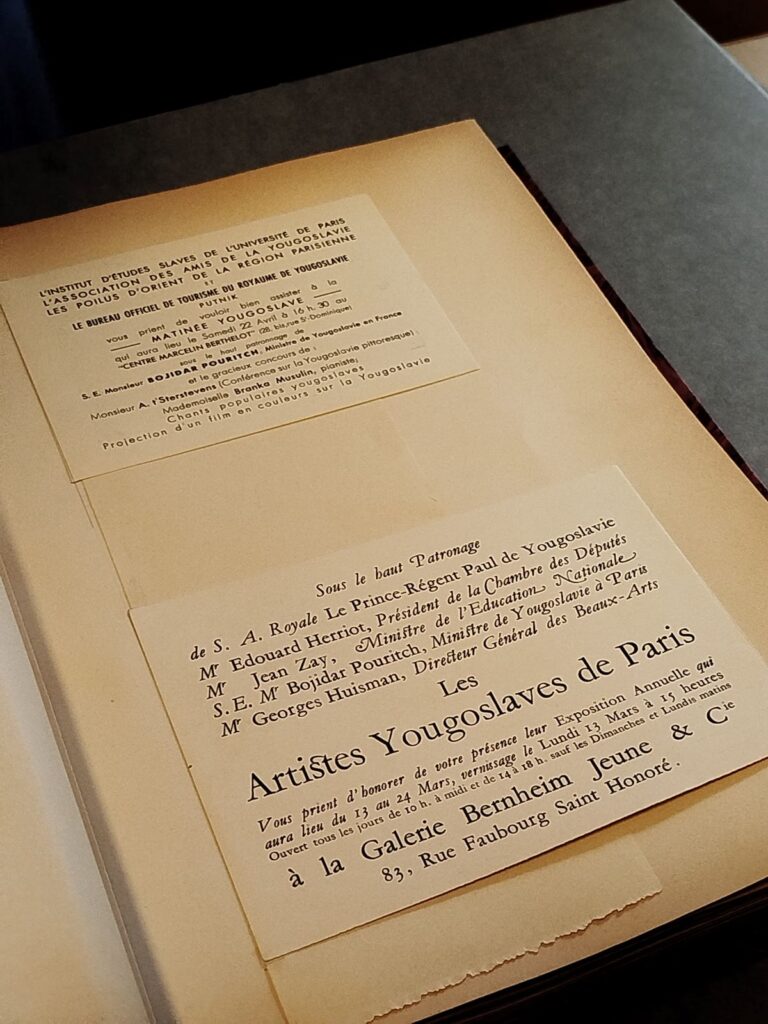 L'INSTITUT D'ÉTUDES SLAVES DE L'UNIVERSITÉ DE PARIS
L'ASSOCIATION DES AMIS DE LA YOUGOSLAVIE
LES POILUS D'ORIENT DE LA RÉGION PARISIENNE
ET
LE BUREAU OFFICIEL DE TOURISME DU ROYAUME DE YOUGOSLAVIE
PUTNIK
vous prient de vouloir bien assister à la
MATINÉE YOUGOSLAVE
qui aura lieu le Samedi 22 Avril à 16 h. 30 au
"CENTRE MARCELIN BERTHELOT" (28, bis, rue St-Dominique)
sous le haut patronage de
S. E. Monsieur BOJIDAR POURITCH, Ministre de Yougoslavie en France
et le gracieux concours de :
Monsieur A. t'Serstevens (Conférence sur la Yougoslavie pittoresque) ;
Mademoiselle Branka Musulin, pianiste;
Chants populaires yougoslaves
Projection d'un film en couleurs sur la Yougoslavie
Sous le haut Patronage
de S. A. Royale Le Prince-Régent Paul de Yougoslavie
Mr Edouard Herriot, Président de la Chambre des Députés
Mr Jean Zay, Ministre de l'Education Nationale
S. E. Mr Bojidar Pouritch, Ministre de Yougoslavie à Paris
Mr Georges Huisman, Directeur Général des Beaux-Arts
Les
Artistes Yougoslaves de Paris
Vous prient d'honorer de votre présence leur Exposition Annuelle qui
aura lieu du 13 au 24 Mars, vernissage le Lundi 13 Mars à 15 heures
Ouvert tous les jours de 10 h. à midi et de 14 à 18 h. sauf les Dimanches et Lundis matins
à la Galerie Bernheim Jeune & Cie
83, Rue Faubourg Saint Honoré.